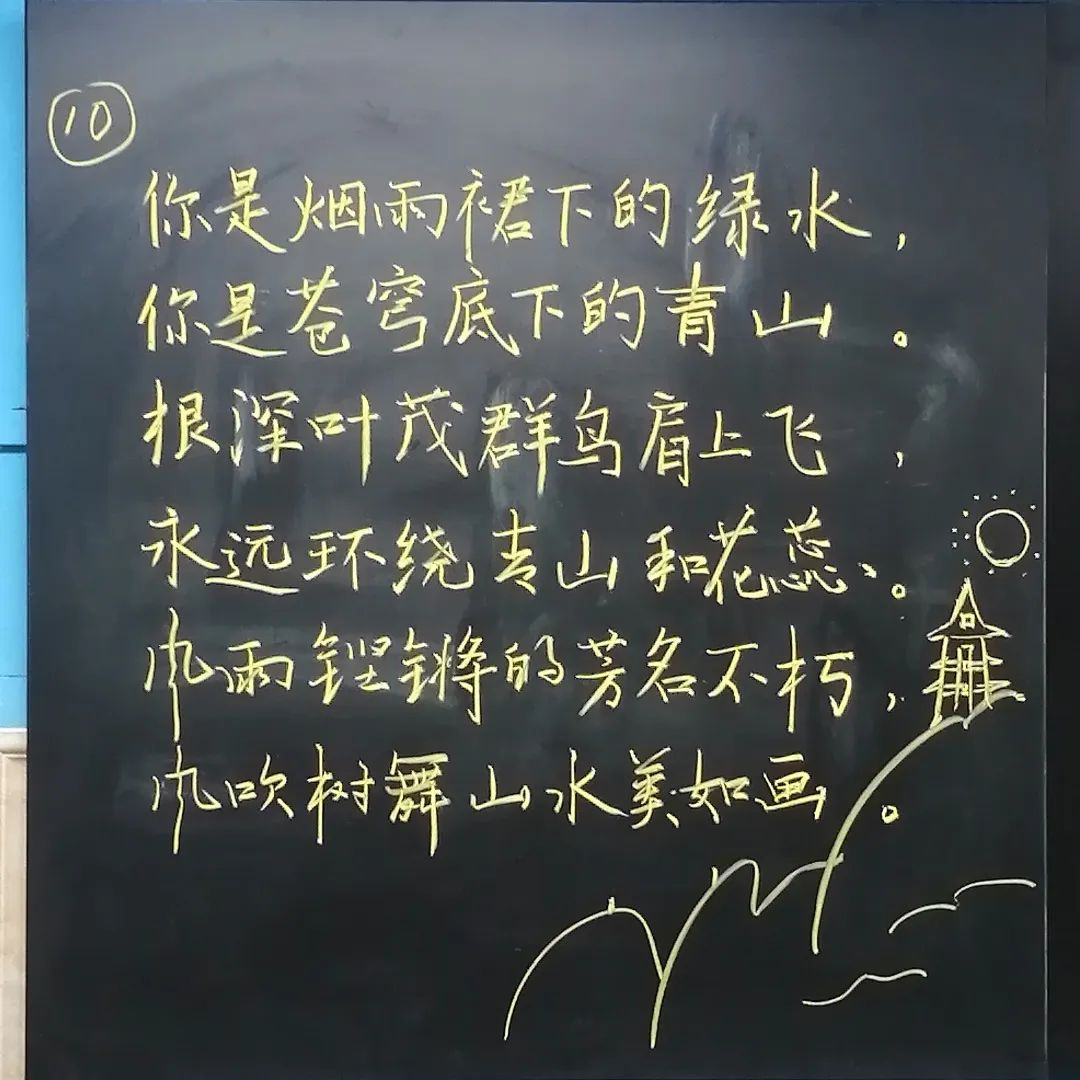 10
你是烟雨裙下的绿水，
你是苍穹底下的青山。
根深叶茂群鸟肩上飞，
永远环绕青山和花蕊。
风雨铿锵的芳名不朽，
风吹树舞山水美如画。